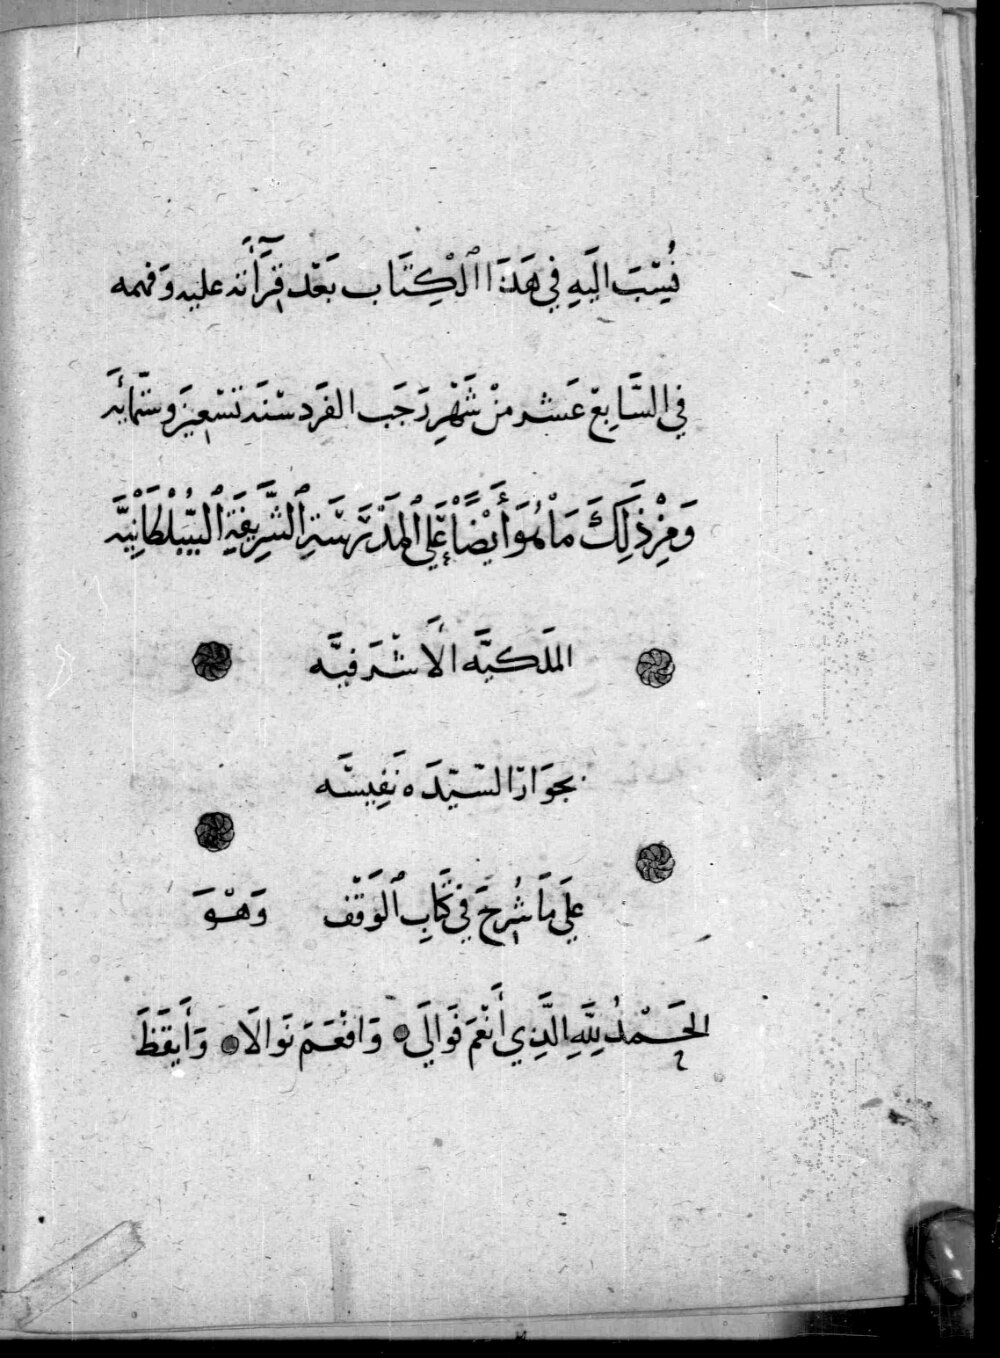 نُسِبَ اليَهِ فِي هَذَا الْكِتَاب بَعْد قِرَآَأته عليه وَفهمه
فِي السَّابِعْ عَشر مِنْ شَهْرِ رَجَب الفَرد سَنَه تسْعِيَن وَستّمائَه
وَمِنْ ذَلِكَ مَا هُوَ أَيْضًا عَلَي المَدْرَسَةِ الشَّرِيفَةِ السُّلْطَانِيَّه
الملَكيَّه الأَشْرَفيَّه
بجوَار السَّيّدَه نَفِيسَه
عَلَي مَا شُرِحَ فِي كِتَابِ الوَقْف وَهْوَ
الحَمْدُ لِلَّهِ الَّذِي أَنْعَمَ فَوَالَي وَافْعَمَ نَوَالَا وَأَيقَظَ